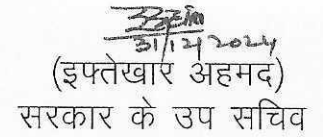 31/12/2024
(इफ्तेखार अहमद)
सरकार के उप सचिव